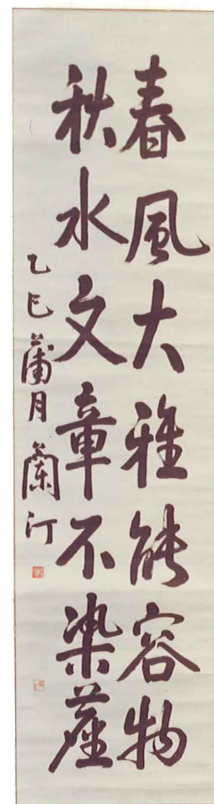 春風大雅能容物
秋水文章不染塵
乙巳蒲月蘭汀